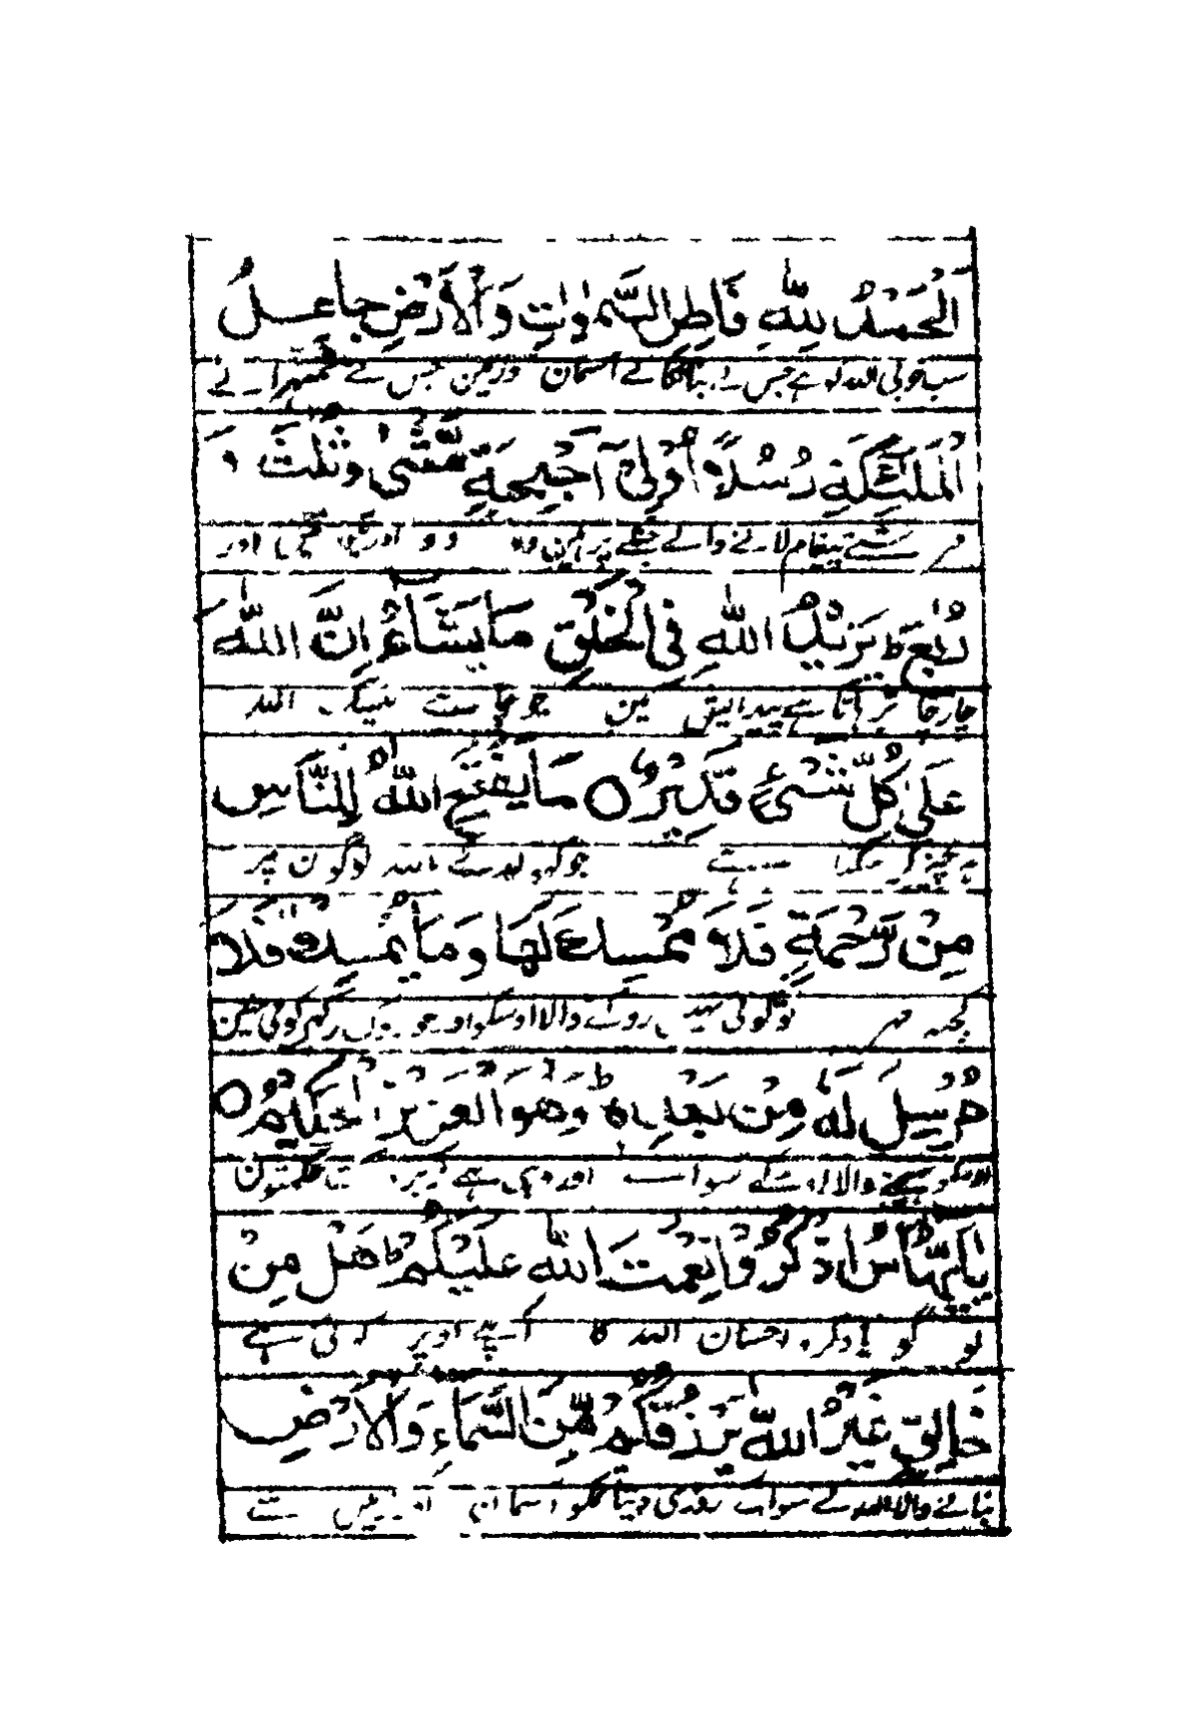 اَلْحَمْدُ لِلّٰهِ فَاطِرِ السَّمٰوٰتِ وَالْاَرْضِ جَاعِلُ
سب خوبی اللہ کو ہے جس نے بنا نکالے آسمان و زمین جس نے ٹھہرائے
الْمَلٰٓئِكَةِ رُسُلًا اُولِیْٓ اَجْنِحَةٍ مَّثْنٰی وَثُلٰثَ وَ
فرشتے پیغام لانے والے جنکے پر ہین دو دو اور تین تین اور
رُبٰعَ ؕ یَزِیْدُ اللّٰهِ فِی الْخَلْقِ مَا یَشَآءُ اِنَّ اللّٰهَ
چار چار بڑہاتا ہے پیدایش مین جو چاہے بیشک اللہ
عَلٰی كُلِّ شَیْءٍ قَدِیْرٌ ○ مَا یَفْتَحِ اللّٰهُ لِلنَّاسِ
ہر چیز کر سکتا ہے جو کہولدے اللہ لوگون پر
مِنْ رَّحْمَةٍ فَلَا مُمْسِكَ لَهَا وَمَا یُمْسِكْ فَلَا
کچہ مہر تو کوئی نہین روکنے والا اوسکو اور جو روک رکہے کوئی نہین
مُرْسِلَ لَهٗ مِنْ بَعْدِهٖ ؕ وَهُوَ الْعَزِیْزُ الْحَكِیْمُ ○
والا اوسکے سواے اور وہی ہے زبردست حکمتون
یٰۤاَیُّهَا النَّاسُ اذْكُرُوْا نِعْمَتَ اللّٰهِ عَلَیْكُمْ ؕ هَلْ مِنْ
لوگو یاد کرو احسان اللہ کا اپنے اوپر کوئی ہے
خَالِقٍ غَیْرُ اللّٰهِ یَرْزُقُكُمْ مِّنَ السَّمَآءِ وَالْاَرْضِ
بنانے والا اللہ کے سواے روزی دیتا تمکو آسمان اور زمین سے